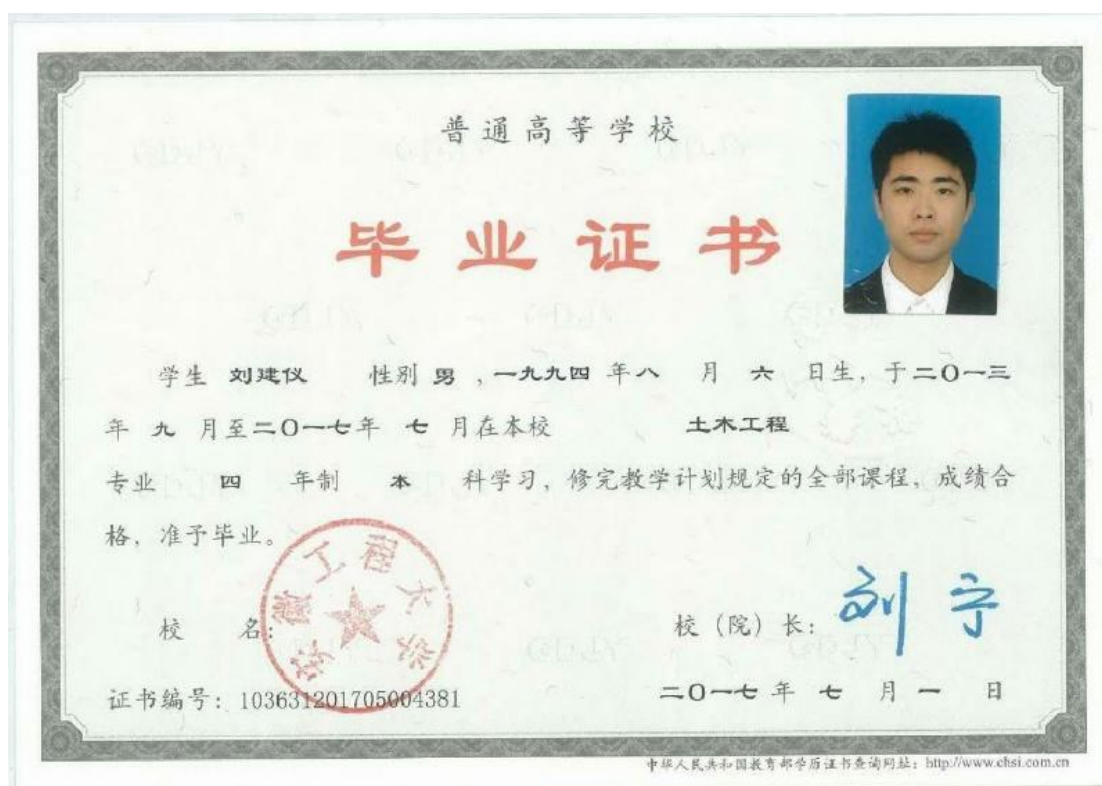 普通高等学校
毕业证书
学生 刘建仪 性别 男 ，一九九四 年 八 月 六 日生，于二〇一三
年 九 月至二〇一七年 七 月在本校 土木工程
专业 四 年制 本 科学习，修完教学计划规定的全部课程，成绩合
格，准予毕业。
安徽工程大学
校 名：
校（院）长：刘宁
证书编号：103631201705004381
二〇一七年 七 月 一 日
中华人民共和国教育部学历证书查询网址：http://www.chsi.com.cn